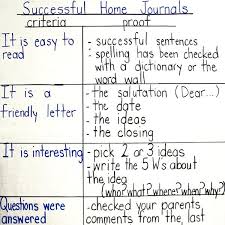 Successful Home Journals
criteria proof
It is easy to read
- successful sentences
- spelling has been checked
with a dictionary or the
word wall
It is a
friendly letter
- the salutation (Dear...)
- the date
- the ideas
- the closing
It is interesting
- pick 2 or 3 ideas
- write the 5 W's about
the idea
(who? what? where? when? why?)
Questions were
answered
- checked your parents
comments from the last